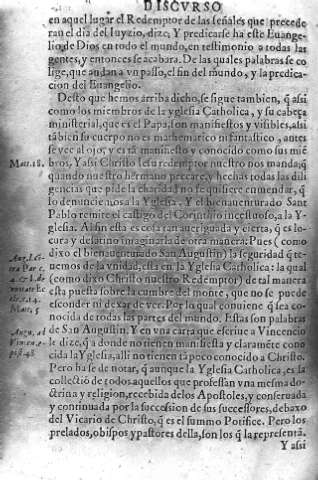 DISCVRSO
en aquel lugar el Redemptor de las señales que precede
ran el dia del Iuyzio, dize, Y predicarse ha este Euange
lio, de Dios en todo el mundo, en testimonio a todas las
gentes, y entonces se acabara. De las quales palabras se co
lige, que andan a vn passo, el fin del mundo, y la predica
cion del Euangelio.
Desto que hemos arriba dicho, se sigue tambien, q̃ assi
como los miembros de la Yglesia Catholica, y su cabeça
ministerial, que es el Papa, son manifiestos y visibles, assi
tãbien su cuerpo no es mathematico ni fantastico, antes
se vee al ojo, y está manifiesto y conocido como sus miẽ
Mat. 18.
bros. Y assi Christo Iesu redemptor nuestro nos manda, q̃
quando nuestro hermano precare, y hechas todas las dili
gencias que pide la charidad no se quisiere enmendar, q̃
lo denunciemos a la Yglesia. Y el bienauenturado Sant
Pablo remite el castigo del Corinthio incestuoso, a la Y-
glesia. Al fin esta es cosa tan aueriguada y cierta, q̃ es lo-
cura y desatino imaginarla de otra manera: Pues (como
dixo el bienauenturado San Augustin) la seguridad q̃ te-
nemos de la vnidad, está en la Yglesia Catholica: la qual
(como dixo Christo nuestro Redemptor) de tal manera
Mat. 5
esta puesta sobre la cumbre del monte, que no se puede
esconder ni dexar de ver. Por lo qual conuiene q̃ sea co-
nocida de todas las partes del mundo. Estas son palabras
de San Augustin. Y en vna carta que escriue a Vincencio
le dize, q̃ a donde no tienen manifiesta y claramẽte cono
cida la Yglesia, alli no tienen tãpoco conocido a Christo.
Pero ha se de notar, q̃ aunque la Yglesia Catholica, es la
collectiõ de todos aquellos que professan vna mesma do-
ctrina y religion, recebida de los Apostoles, y conseruada
y continuada por la succession de sus successores, debaxo
del Vicario de Christo, q̃ es el summo Potifice. Pero los
prelados, obispos y pastores della, son los q̃ la representã.
Y assi